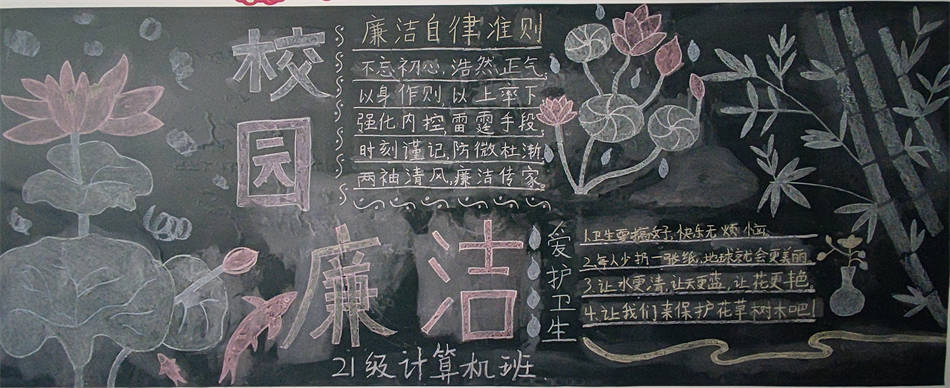 校园
廉洁
廉洁自律准则
不忘初心,浩然正气,
以身作则,以上率下
强化内控,雷霆手段,
时刻谨记,防微杜渐,
两袖清风,廉洁传家。
爱护卫生
1.卫生要搞好,快乐无烦恼
2.每人少扔一张纸,地球就会更美丽
3.让水更清,让天更蓝,让花更艳
4.让我们来保护花草树木吧!
21级计算机班.